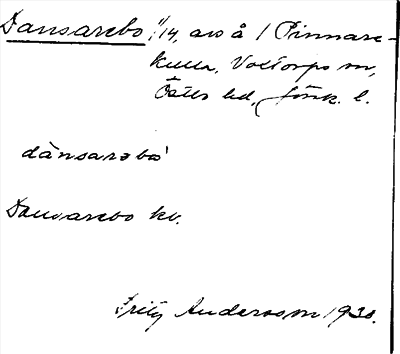 Dansarebo, 1/14, avs å 1 Pinnare-
kulla, Voxtorps sn,
Östbo hd, Jönk. l.
dànsarəbo'
Dansarebo kv.
Fritz Andersson 1930.